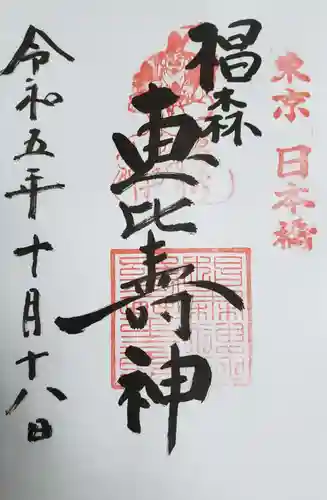 東京 日本橋
椙森
恵比寿神
令和五年十月十八日